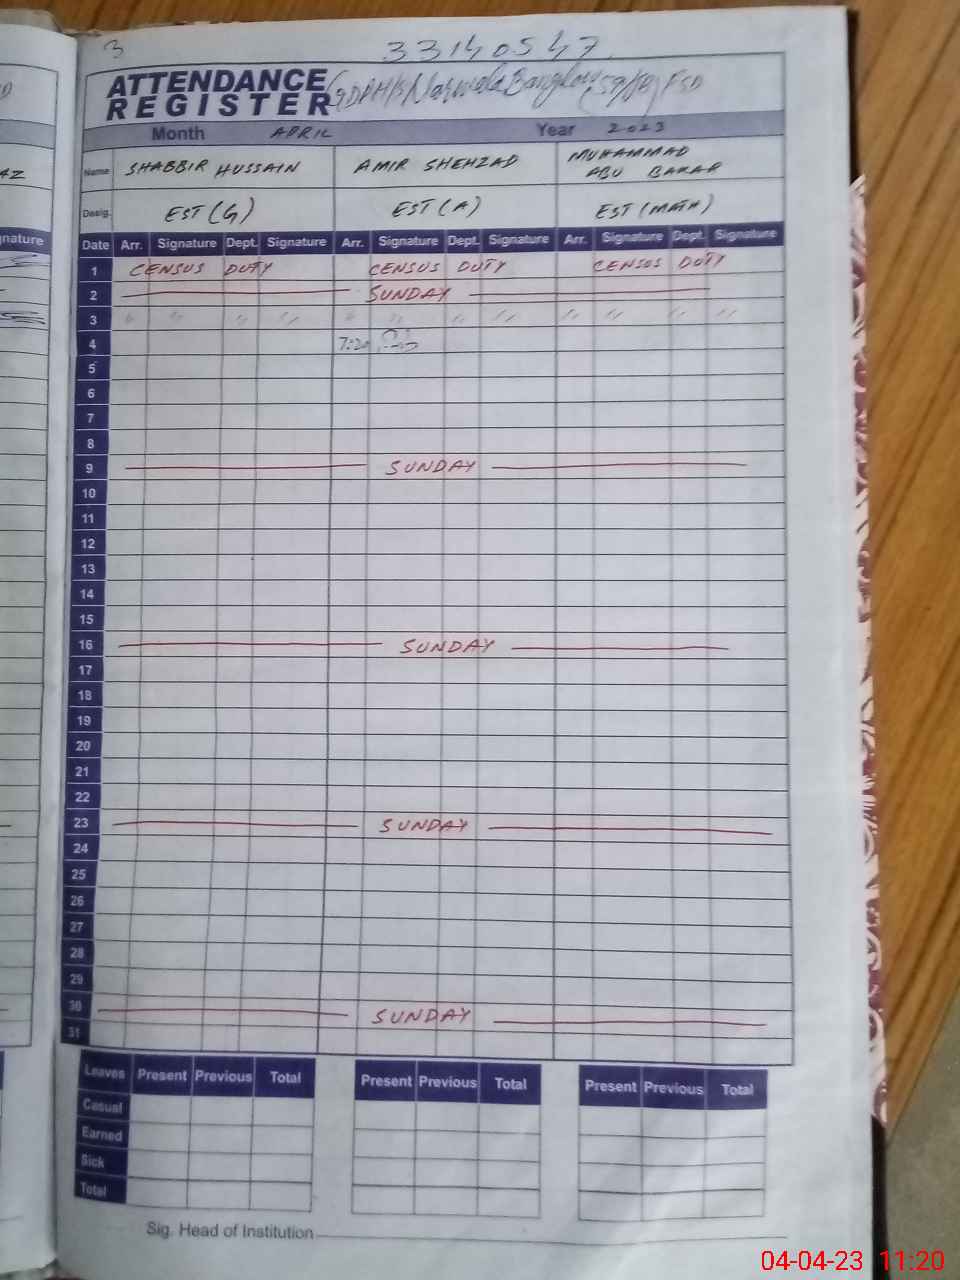 3
33140547
ATTENDANCE
REGISTER
Narwala Banglow FSD
Month APRIL Year 2023
Name SHABBIR HUSSAIN AMIR SHEHZAD MUHAMMAD ABU BAKAR
Desig. EST (G) EST (A) EST (MATH)
Date Arr. Signature Dept. Signature Arr. Signature Dept. Signature Arr. Signature Dept. Signature
1 CENSUS DUTY CENSUS DUTY CENSUS DUTY
2 SUNDAY
3 " " " " " " " " " " " "
4 7:20
5
6
7
8
9 SUNDAY
10
11
12
13
14
15
16 SUNDAY
17
18
19
20
21
22
23 SUNDAY
24
25
26
27
28
29
30 SUNDAY
31
Leaves Present Previous Total Present Previous Total Present Previous Total
Casual
Earned
Sick
Total
Sig. Head of Institution
04-04-23 11:20